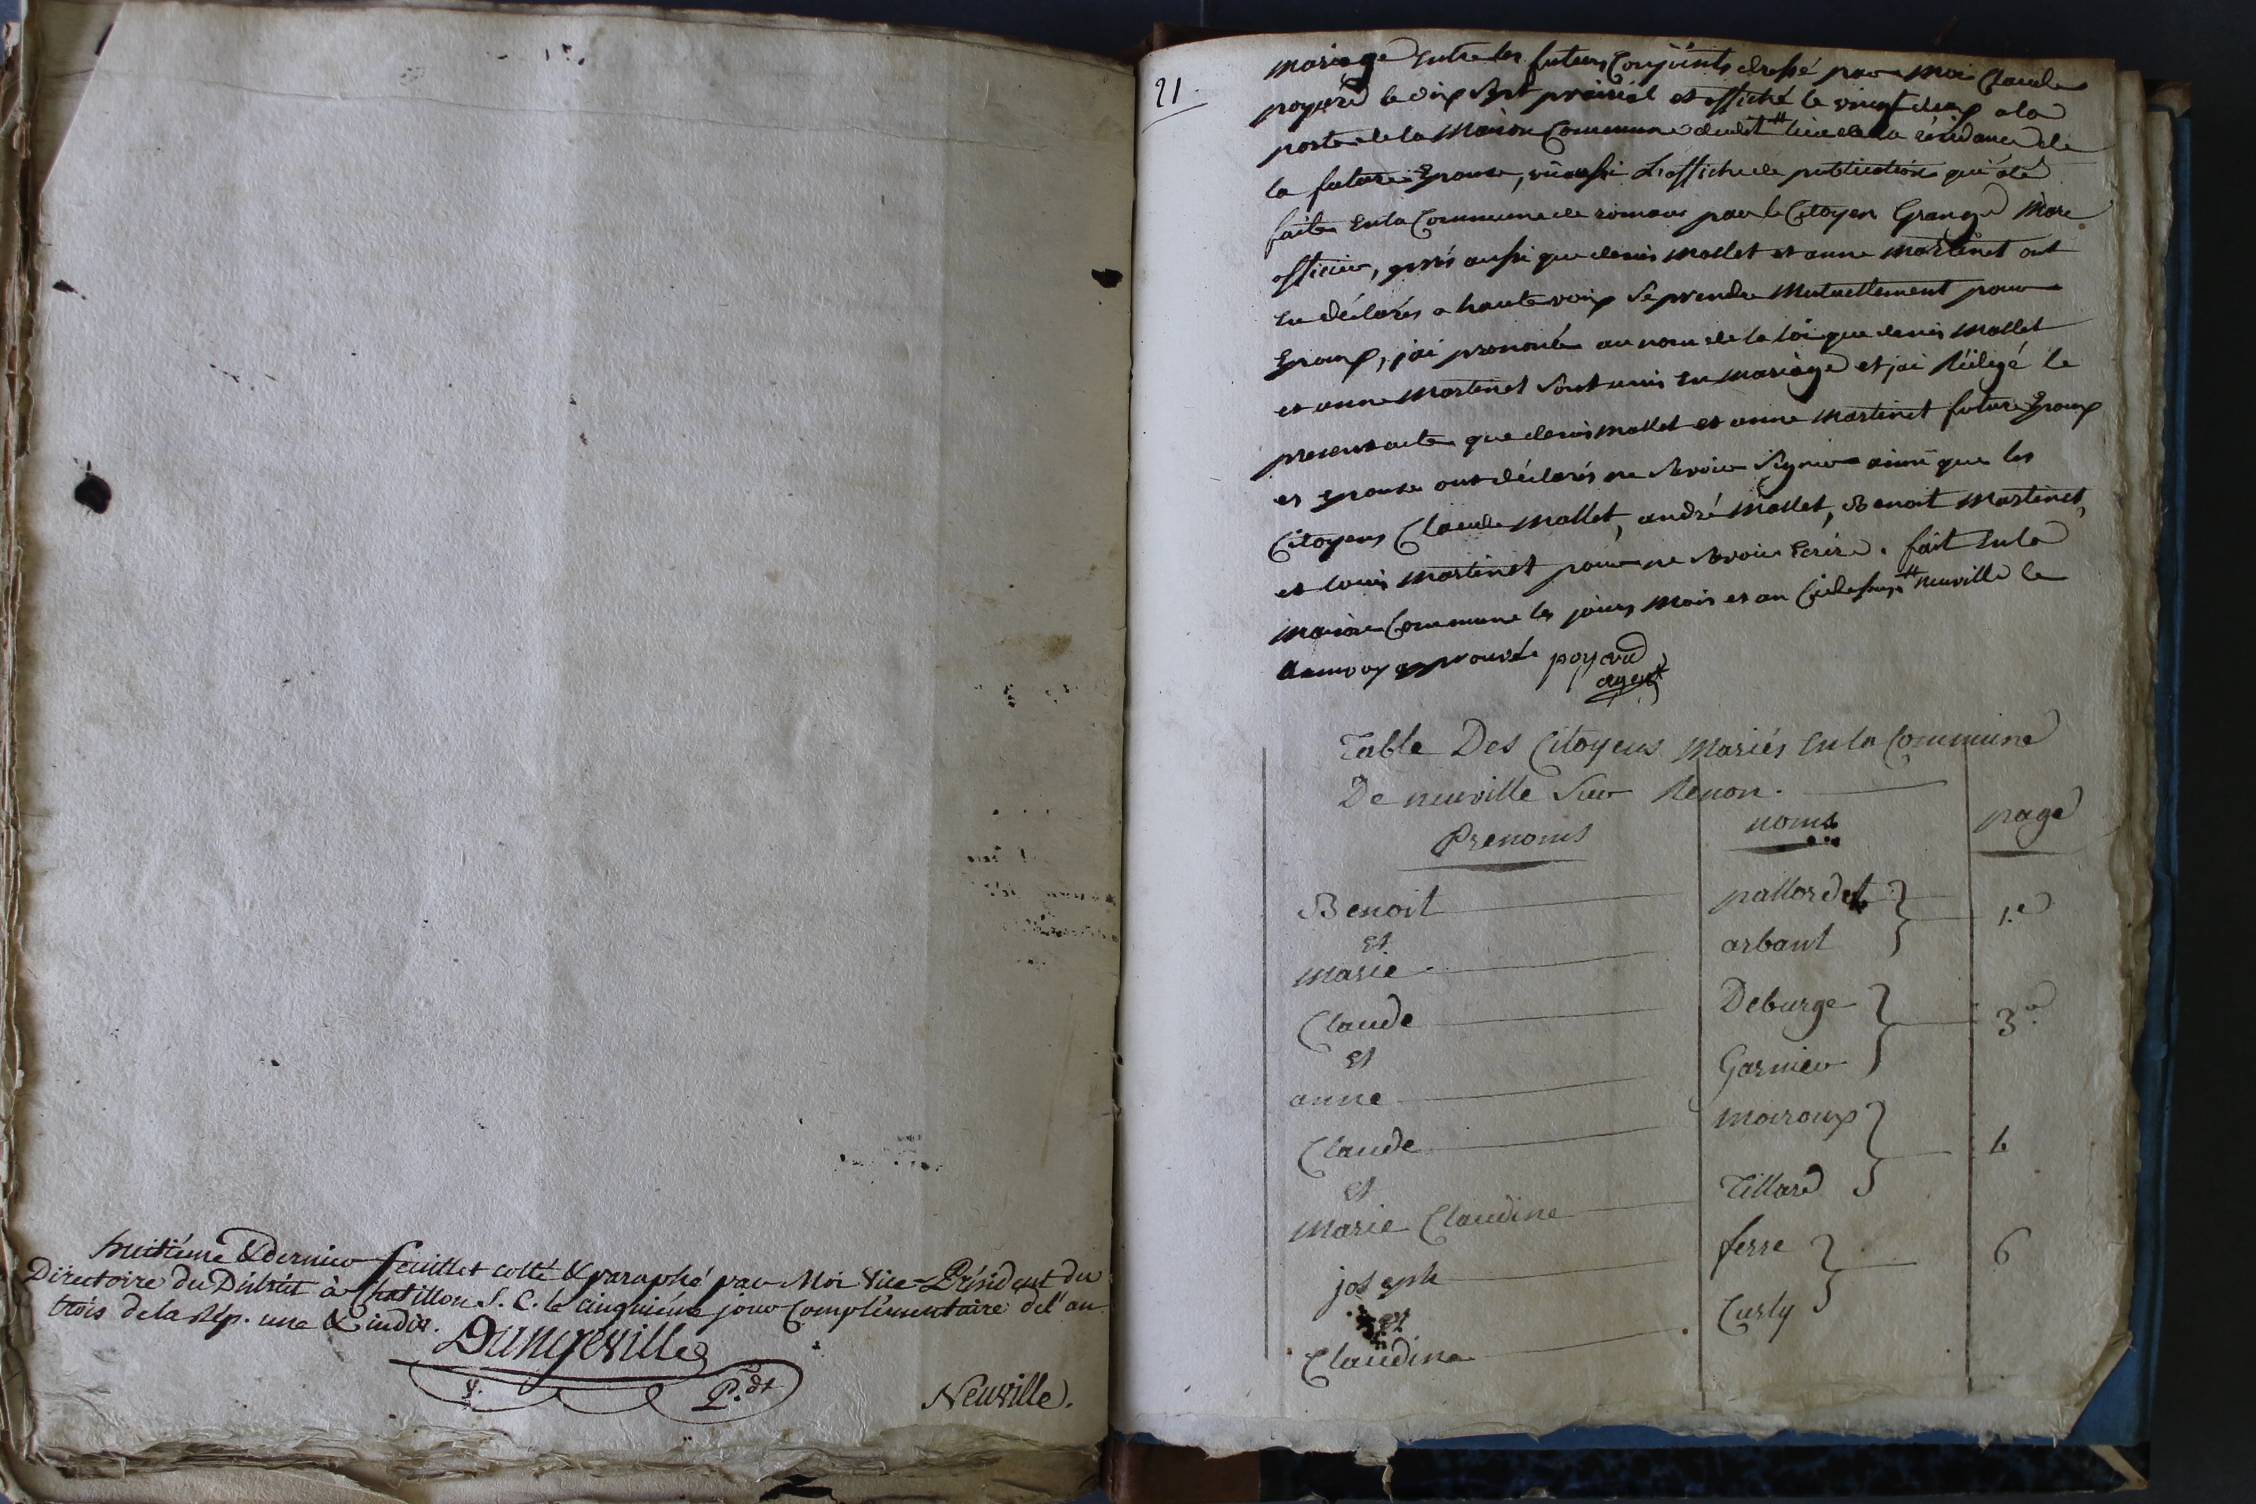 huitiéme & dernier feuillet cotté & paraphé par Moi Vice-Président du
Directoire du District à Chatillon S. C. le cinquiéme jour Complémentaire de l'an
trois de la Rép. une & indiv.
Dangeville
V. P.dt
Neuville.
21.
mariage entre les futurs Conjoints dressé par moi Claude
poyard le dix sept prairial et affiché le vingt deux a la
porte de la Maison Commune dudit # lieu de la résidance de
la future Epouse, vû aussi L'affiche de publication qui a été
faite en la Commune de romans par le Citoyen Grange Mare
officier, après aussi que denis mallet et anne martinet ont
eu déclarés a haute voix se prendre Mutuellement pour
Epoux, j'ai prononcé au nom de la loi que denis mallet
et anne Martinet sont unis en mariage et j'ai rédigé le
present acte que denis mallet et anne martinet future Epoux
et epouse ont déclarés ne savoir signer ainsi que les
Citoyens Claude mallet, andré mallet, Benoit martinet,
et louis martinet pour ne savoir Ecrire. fait en la
maison Commune les jours mois et an Cidessus # neuville le
renvoy approuvé poyard
agent
Table Des Citoyens mariés en la Commune
De neuville Sur Renon.
Prenoms noms page
Benoit pallordet 1.e
et
marie arbant
Claude Deburge 3.e
et
anne Garnier
Claude moiroux 4
et
marie Claudine Tillard
joseph ferre 6
et
Claudine Curly